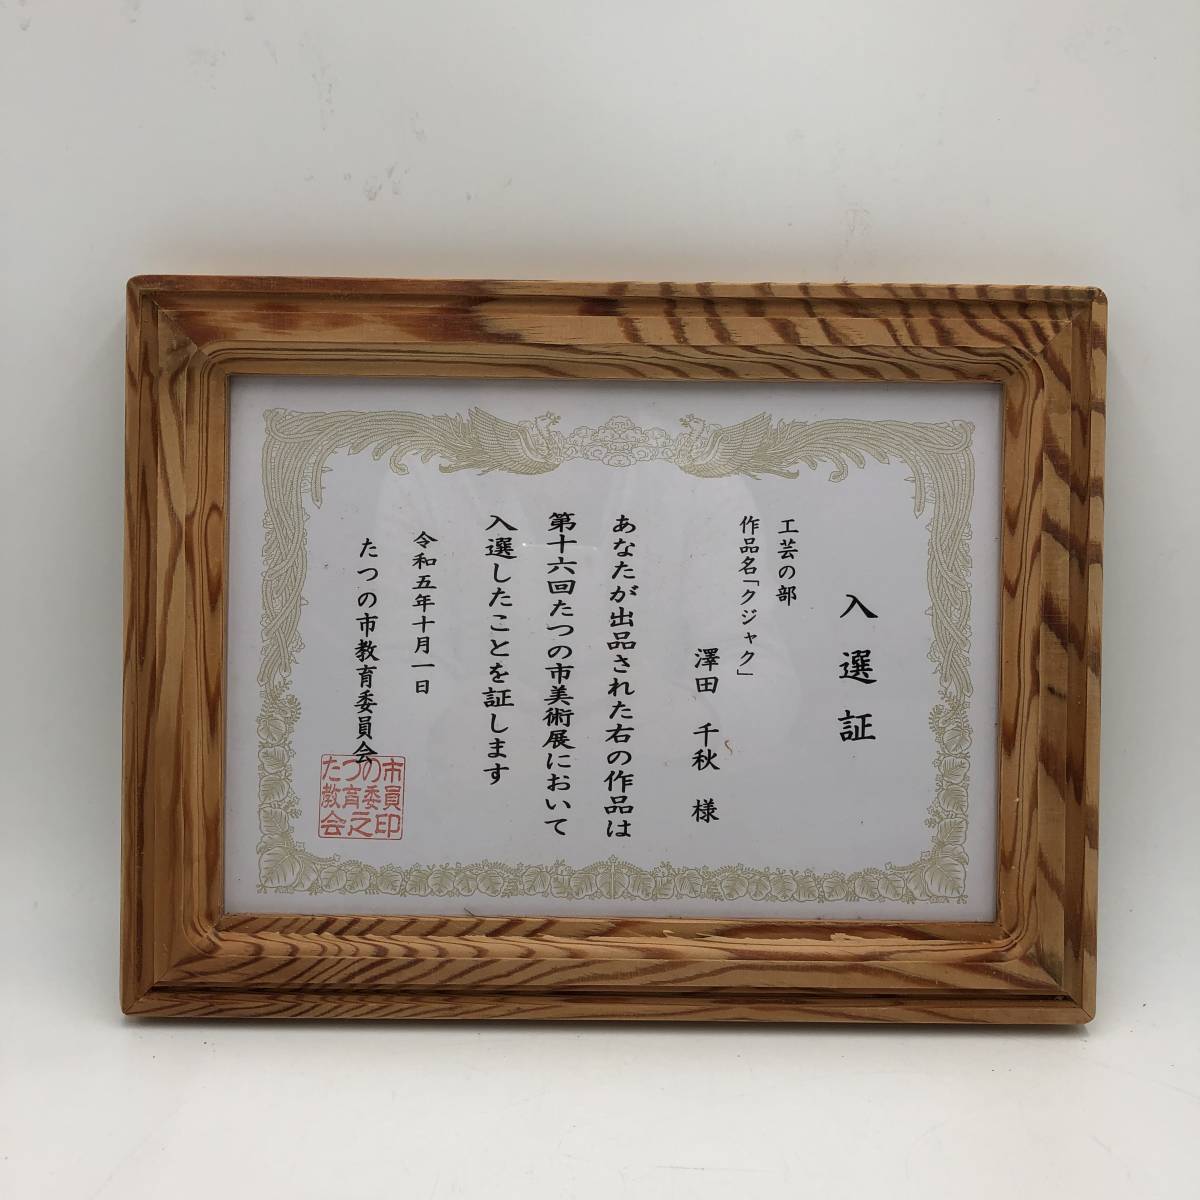 入選証
工芸の部
作品名「クジャク」
澤田 千秋 様
あなたが出品された右の作品は
第十六回たつの市美術展において
入選したことを証します
令和五年十月一日
たつの市教育委員会
たつの市
教育委員
会之印